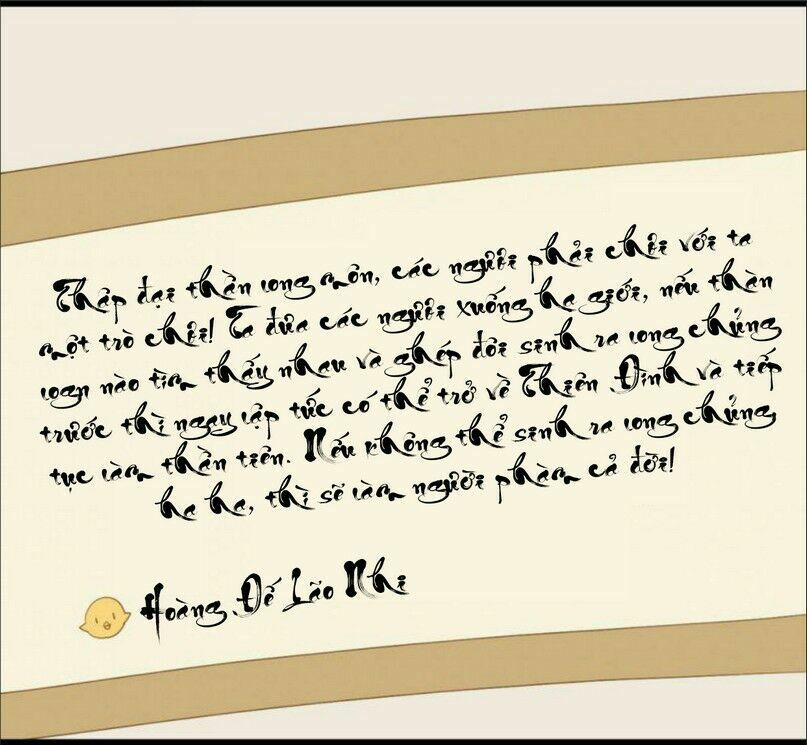 Thập đại thần long môn, các ngươi phải chơi với ta
một trò chơi! Ta đưa các ngươi xuống hạ giới, nếu thần
long nào tìm thấy nhau và ghép đôi sinh ra long chủng
trước thì ngay lập tức có thể trở về Thiên Đình và tiếp
tục làm thần tiên. Nếu không thể sinh ra long chủng
ha ha, thì sẽ làm người phàm cả đời!
Hoàng Đế Lão Nhi